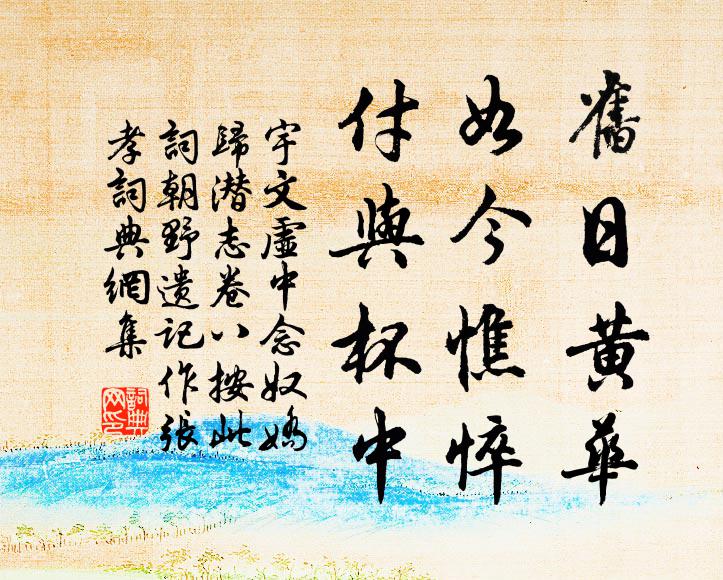 舊日黃華
如今憔悴
付與杯中
宇文虛中念奴嬌
歸潛志卷八按此
詞朝野遺记作張
孝詞典網集
詞典
网印